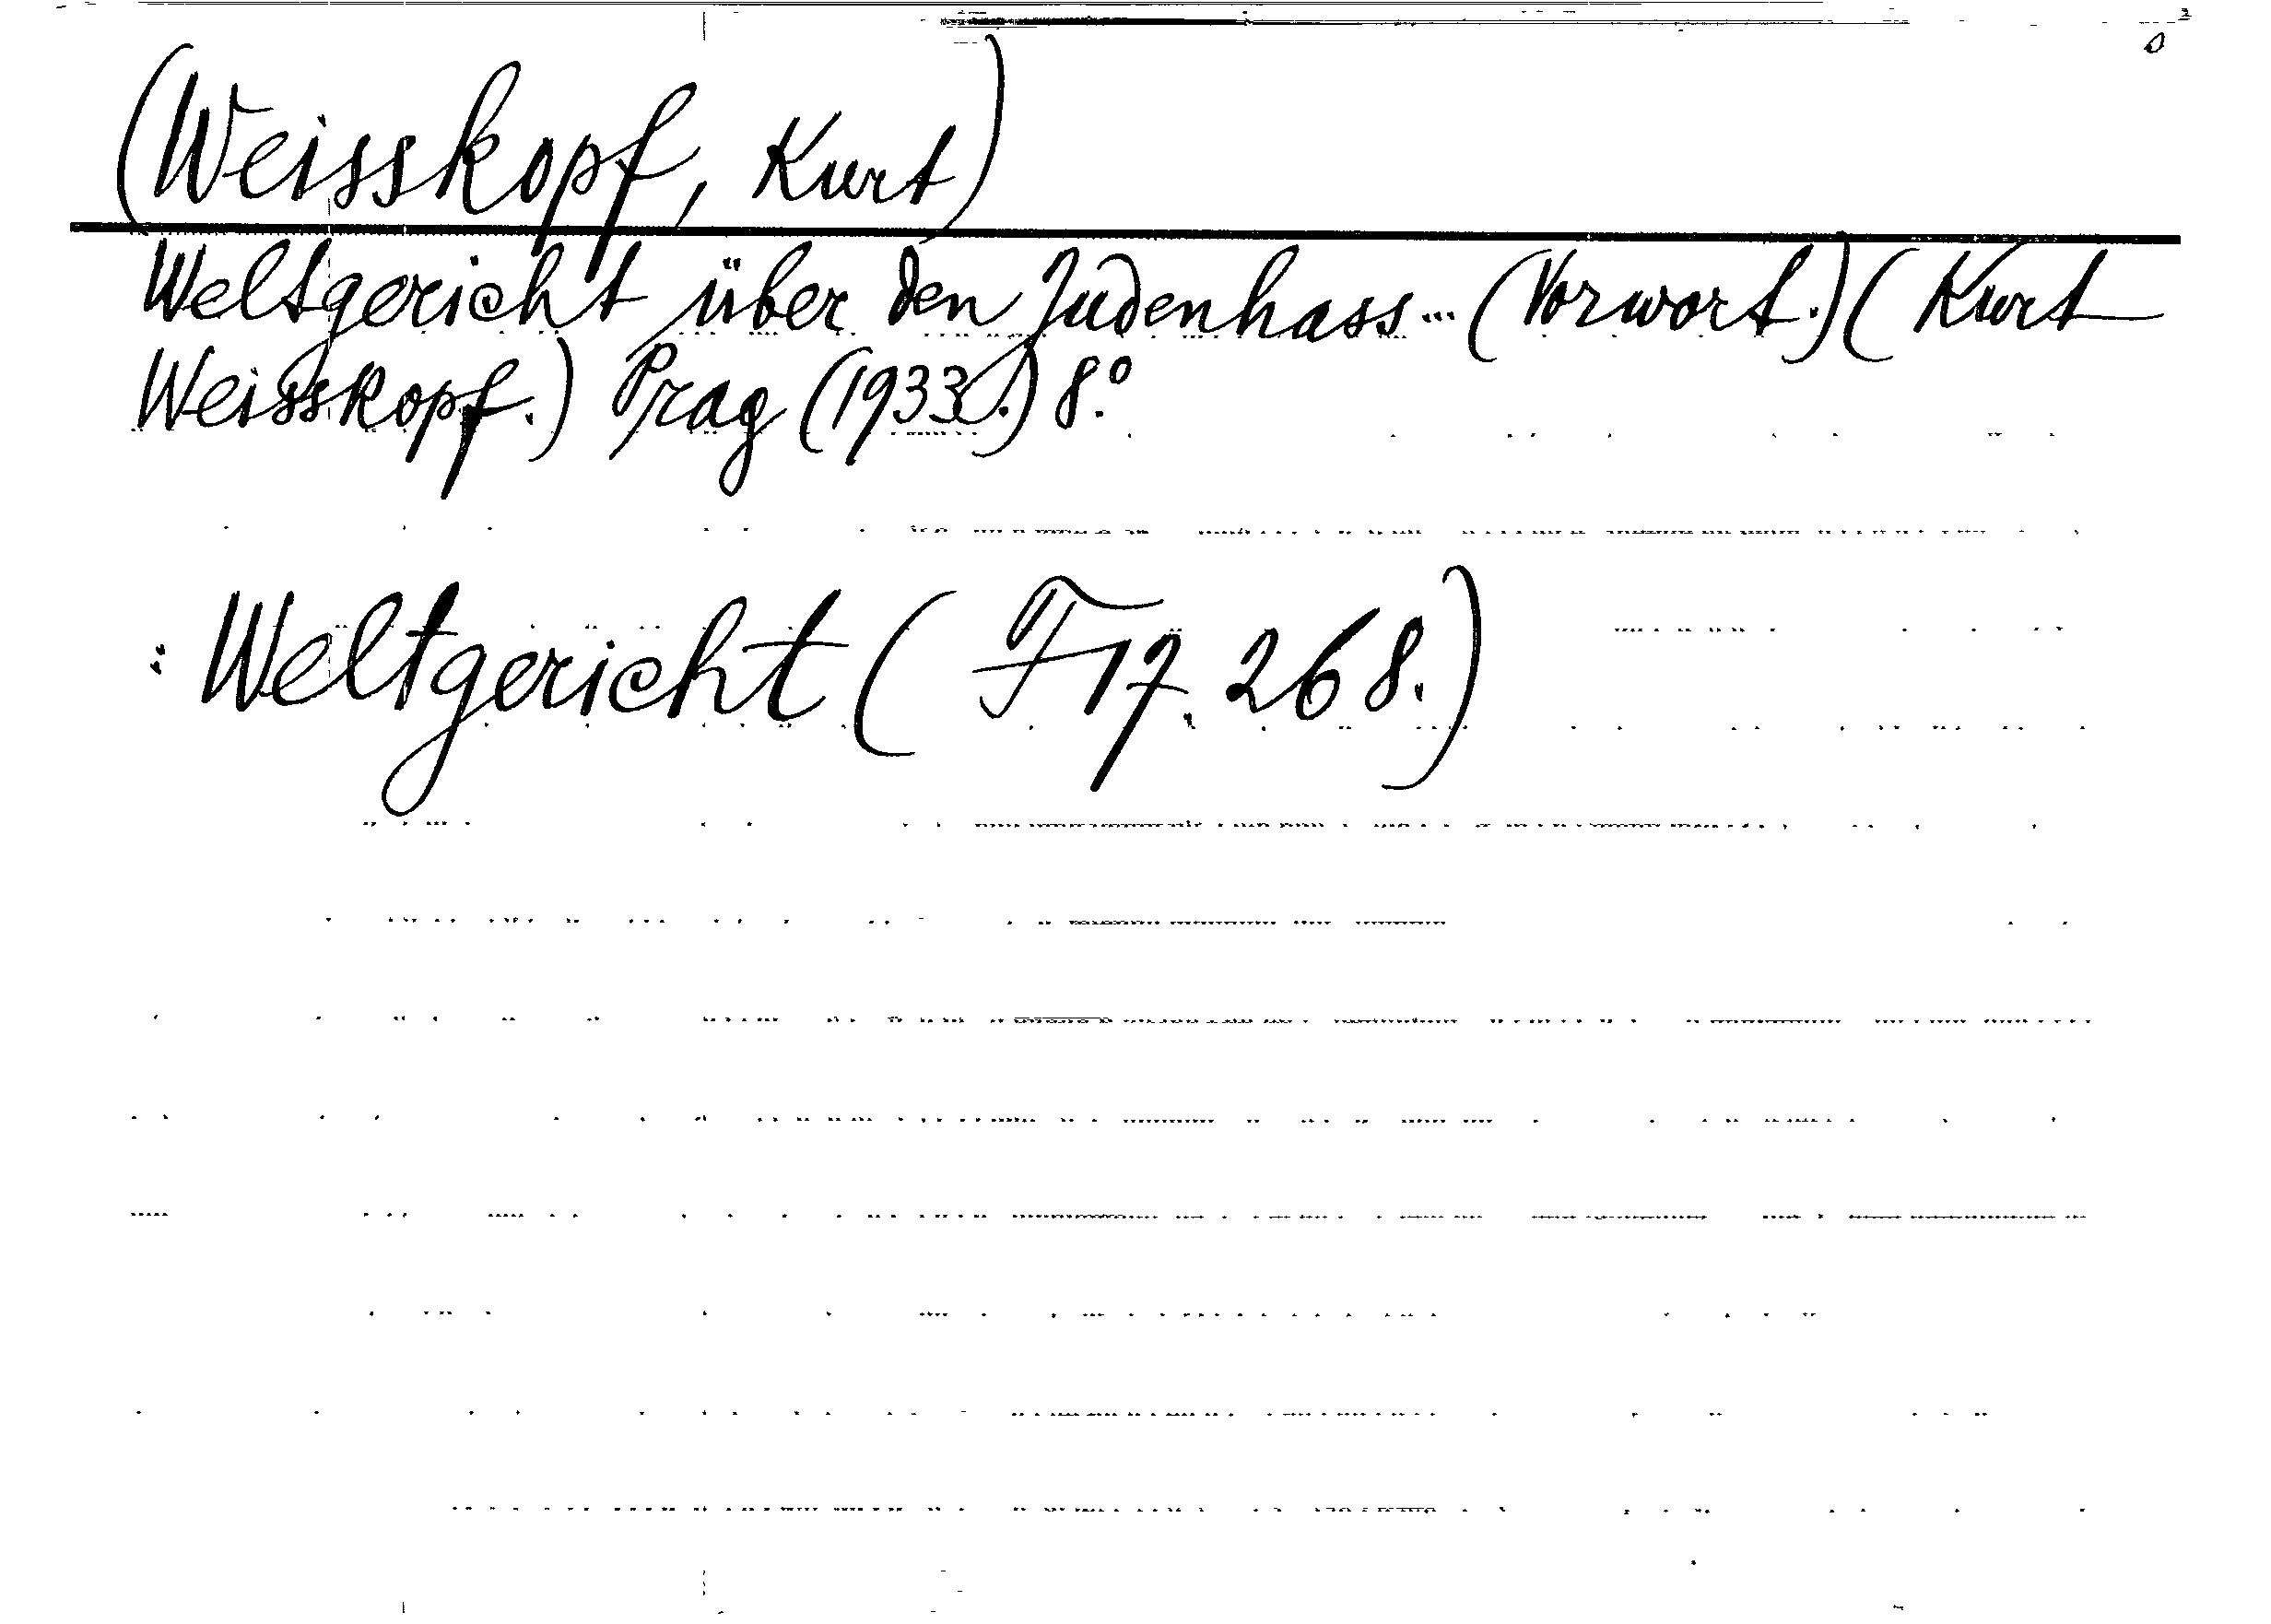 (Weisskopf, Kurt)
Weltgericht über den Judenhass... (Vorwort.) (Kurt
Weisskopf.) Prag (1933.) 8.°
: Weltgericht (F 17. 268.)